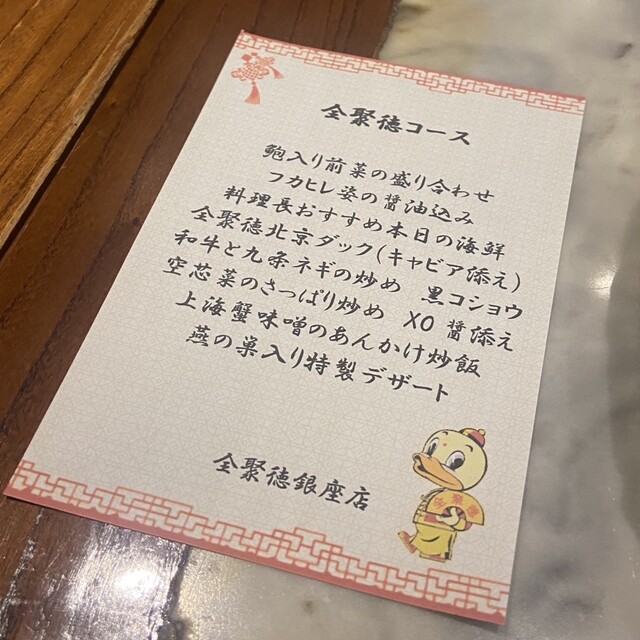 全聚徳コース
鮑入り前菜の盛り合わせ
フカヒレ姿の醤油込み
料理長おすすめ本日の海鮮
全聚徳北京ダック(キャビア添え)
和牛と九条ネギの炒め 黒コショウ
空芯菜のさっぱり炒め XO 醤添え
上海蟹味噌のあんかけ炒飯
燕の巣入り特製デザート
全聚徳銀座店
全聚德